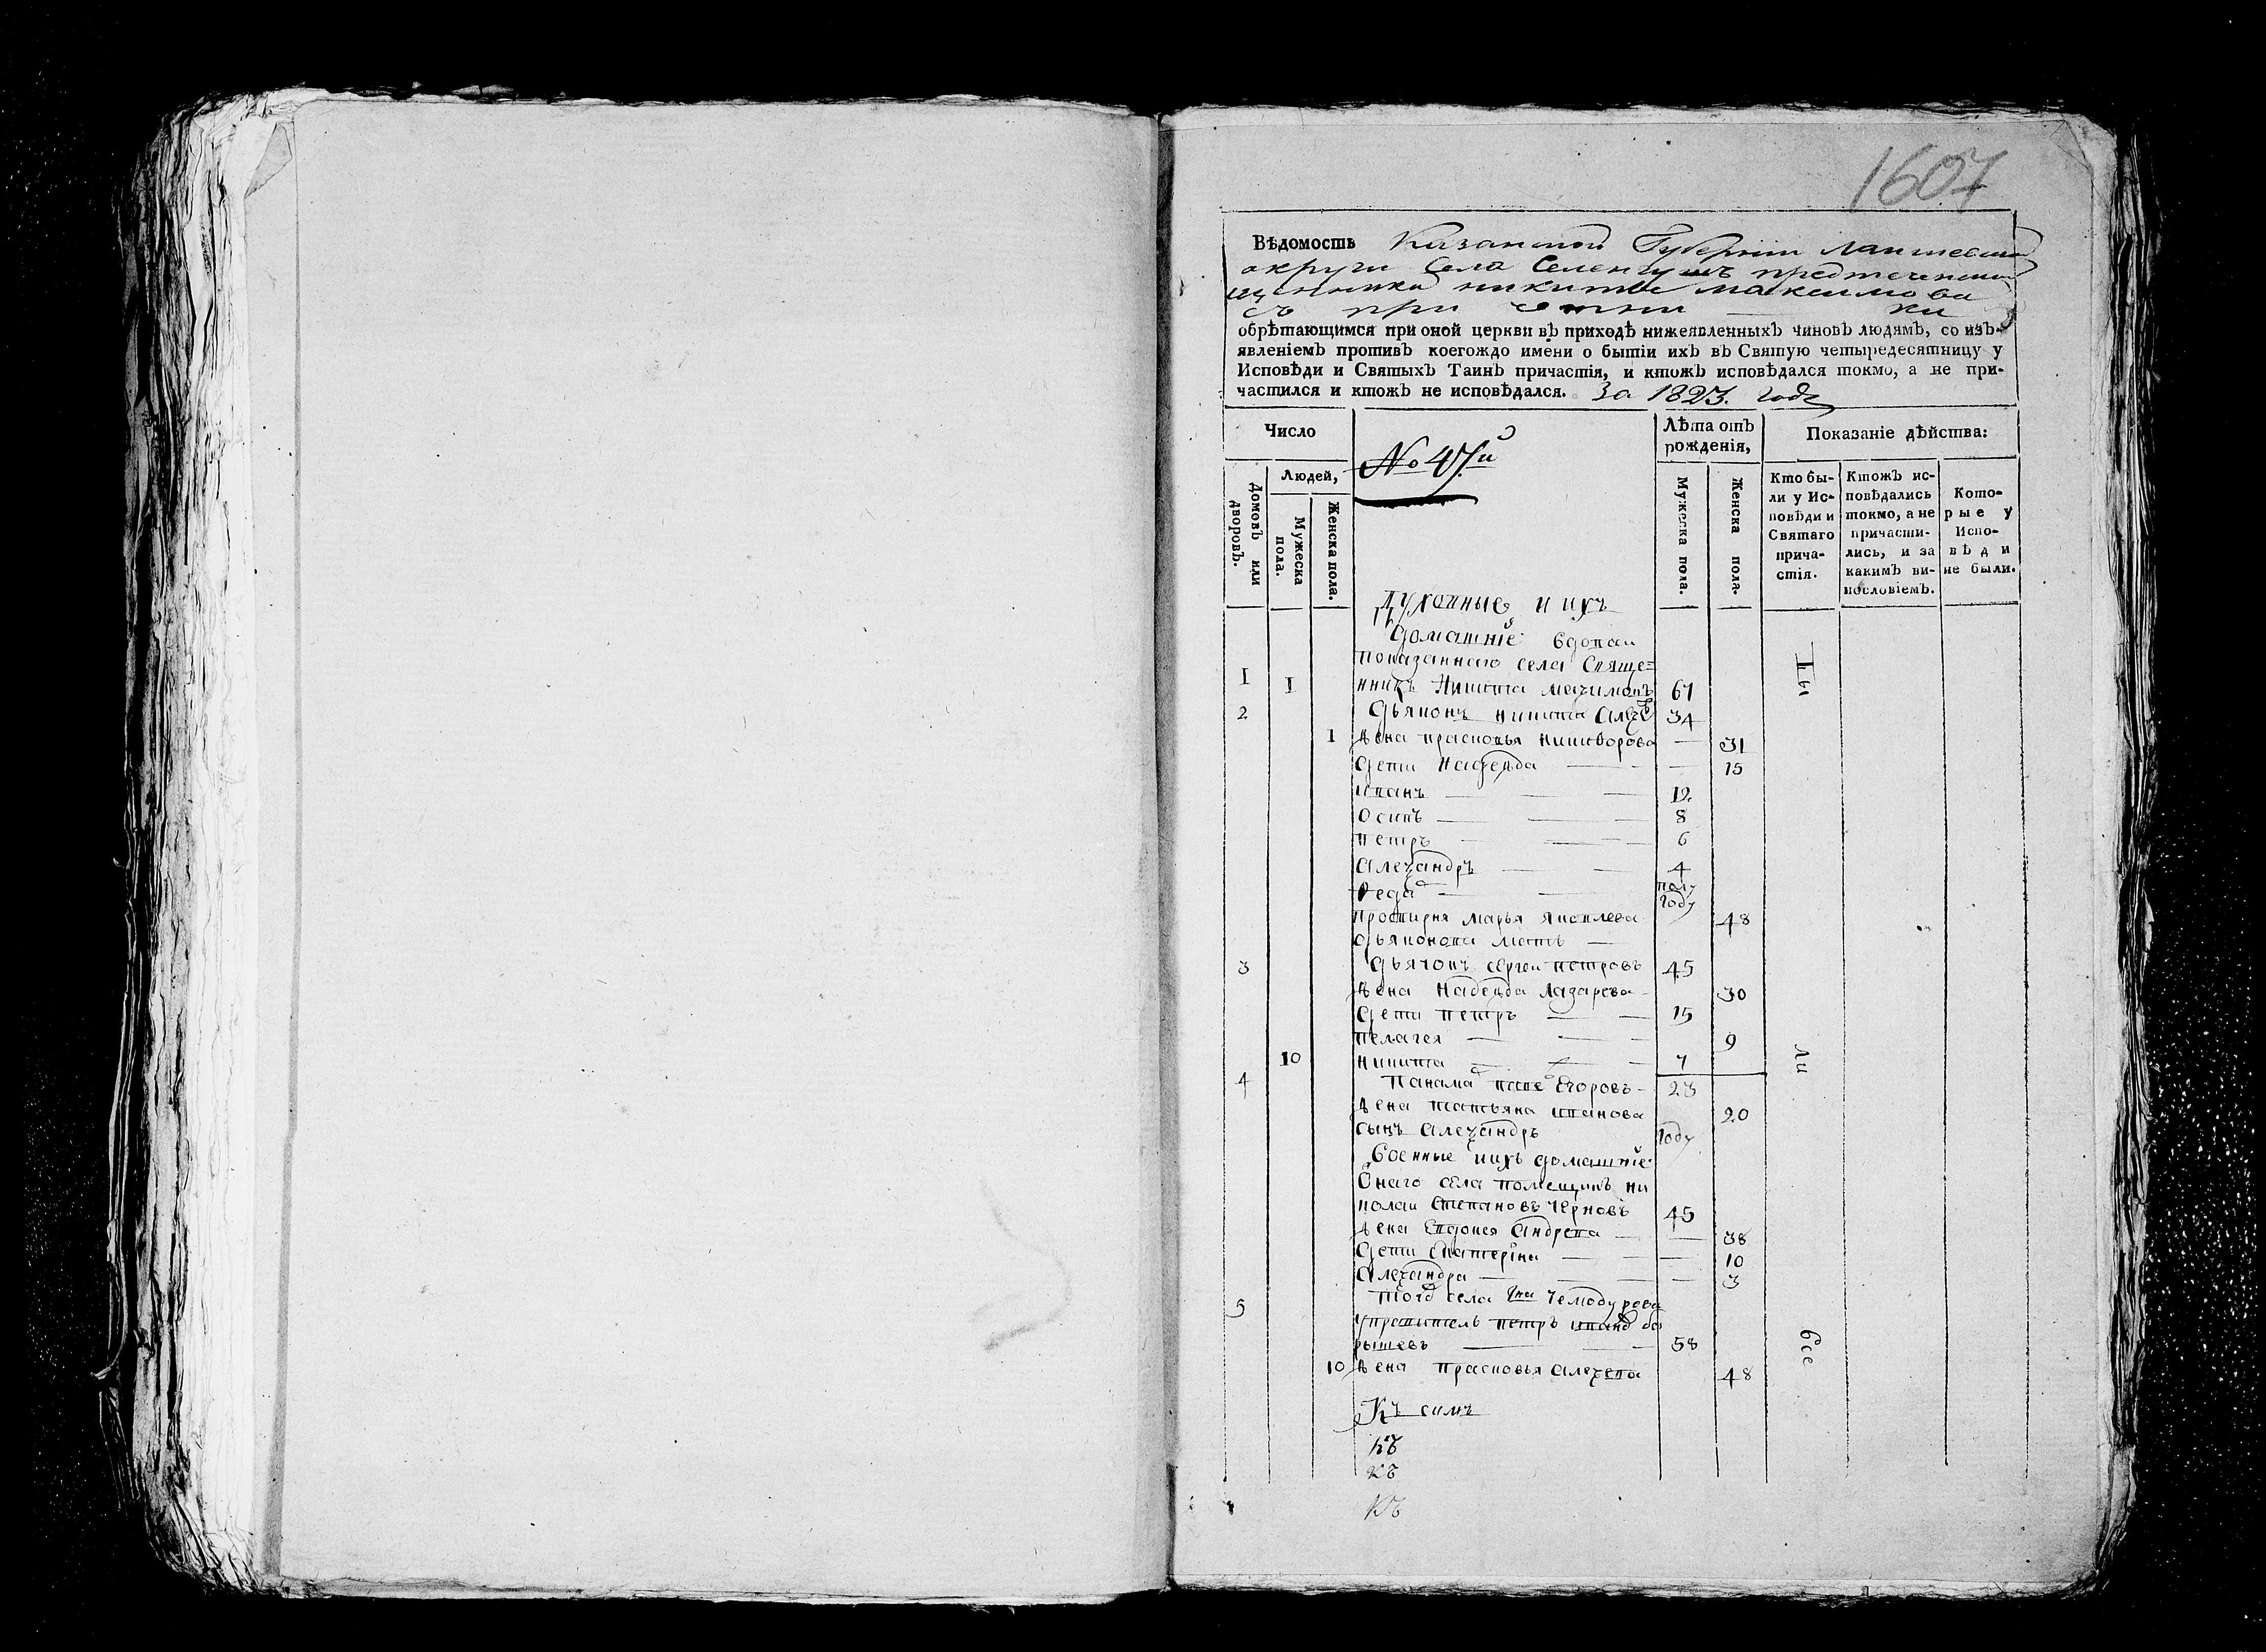 1607
Вѣдомость Казанской Губернiи Лаишевской
округи Села Селенгушъ предтеченской
никиты максимова
съ при
обрѣтающимся при оной церкви въ приходѣ нижеявленныхъ чиновъ людямъ, со изъ-
явленіемъ противъ коегождо имени о бытіи ихъ въ Святую четыредесятницу у
Исповѣди и Святыхъ Таинъ причастія, и ктожъ исповѣдался токмо, а не при-
частился и ктожъ не исповѣдался. За 1823. годъ
Число
№ 47й
Лѣта отъ
рожденія,
Показаніе дѣйства:
Домовъ или
дворовъ.
Людей,
Мужеска
пола.
Женска пола.
Мужеска пола.
Женска пола.
Кто бы-
ли у Ис-
повѣди и
Святаго
прича-
стія.
Ктожъ ис-
повѣдались
токмо, а не
причасти-
лись, и за
какимъ ви-
нословіемъ.
Кото-
рые у
Испо-
вѣди
не были.
Духовные и ихъ
домашніе
показаннаго села Свяще=
1 1 нникъ Никита 61
2 Дьяконъ никита 34
1 жена прасковья никифорова — 31
дети Надежда — — 15
иванъ — 12
Осипъ — 8
петръ — 6
Александръ — 4
полу
году
просвирня марья яковлева 48
дьяконова мать —
3 Дьячокъ сергеи петровъ 45
жена надежда лазарева 30
дети петръ — 15
пелагея — 9
10 никита — 7
4 Егоровъ 23
жена татьяна иванова 20
сынъ Александръ году
Военные иихъ домашніе
Онаго села помещикъ ни
колаи степановъ черновъ 45
жена Андрева — 38
дети Екатерина — — 10
Александра — — 3
5 того села Чемодурова
управитель петръ
рышевъ — 58
10 жена прасковья алексева 48
Къ симъ
къ
къ
къ
Ты
ли
все